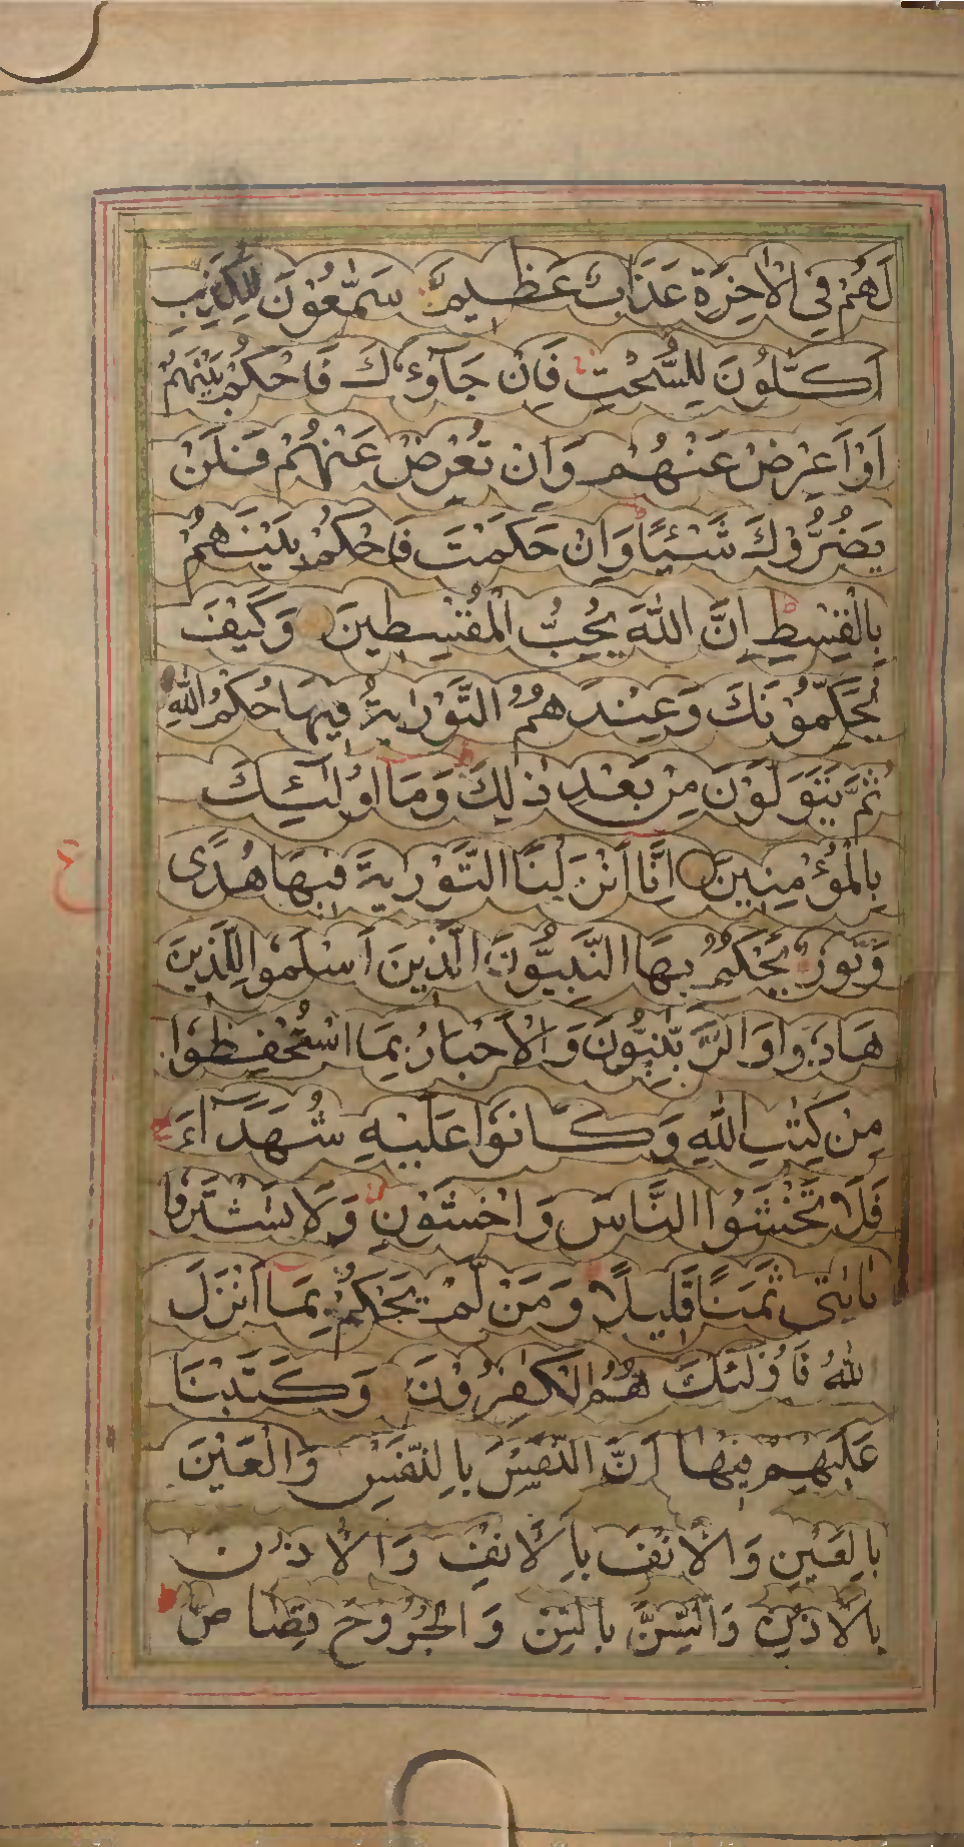 لَهُمْ فِي الْاٰخِرَةِ عَذَابٌ عَظِيْمٌ سَمّٰعُوْنَ لِلْكَذِبِ
اَكّٰلُوْنَ لِلسُّحْتِ فَاِنْ جَآءُوْكَ فَاحْكُمْ بَيْنَهُمْ
اَوْ اَعْرِضْ عَنْهُمْ وَاِنْ تُعْرِضْ عَنْهُمْ فَلَنْ
يَضُرُّوْكَ شَيْئًا وَاِنْ حَكَمْتَ فَاحْكُمْ بَيْنَهُمْ
بِالْقِسْطِ اِنَّ اللّٰهَ يُحِبُّ الْمُقْسِطِيْنَ وَكَيْفَ
يُحَكِّمُوْنَكَ وَعِنْدَهُمُ التَّوْرٰىةُ فِيْهَا حُكْمُ اللّٰهِ
ثُمَّ يَتَوَلَّوْنَ مِنْ بَعْدِ ذٰلِكَ وَمَا اُولٰٓئِكَ
بِالْمُؤْمِنِيْنَ اِنَّا اَنْزَلْنَا التَّوْرٰىةَ فِيْهَا هُدًى
ع
وَّنُوْرٌ يَحْكُمُ بِهَا النَّبِيُّوْنَ الَّذِيْنَ اَسْلَمُوْا لِلَّذِيْنَ
هَادُوْا وَالرَّبّٰنِيُّوْنَ وَالْاَحْبَارُ بِمَا اسْتُحْفِظُوْا
مِنْ كِتٰبِ اللّٰهِ وَكَانُوْا عَلَيْهِ شُهَدَآءَ
فَلَا تَخْشَوُا النَّاسَ وَاخْشَوْنِ وَلَا تَشْتَرُوْا
بِاٰيٰتِيْ ثَمَنًا قَلِيْلًا وَمَنْ لَّمْ يَحْكُمْ بِمَا اَنْزَلَ
اللّٰهُ فَاُولٰٓئِكَ هُمُ الْكٰفِرُوْنَ وَكَتَبْنَا
عَلَيْهِمْ فِيْهَا اَنَّ النَّفْسَ بِالنَّفْسِ وَالْعَيْنَ
بِالْعَيْنِ وَالْاَنْفَ بِالْاَنْفِ وَالْاُذُنَ
بِالْاُذُنِ وَالسِّنَّ بِالسِّنِّ وَالْجُرُوْحَ قِصَاصٌ